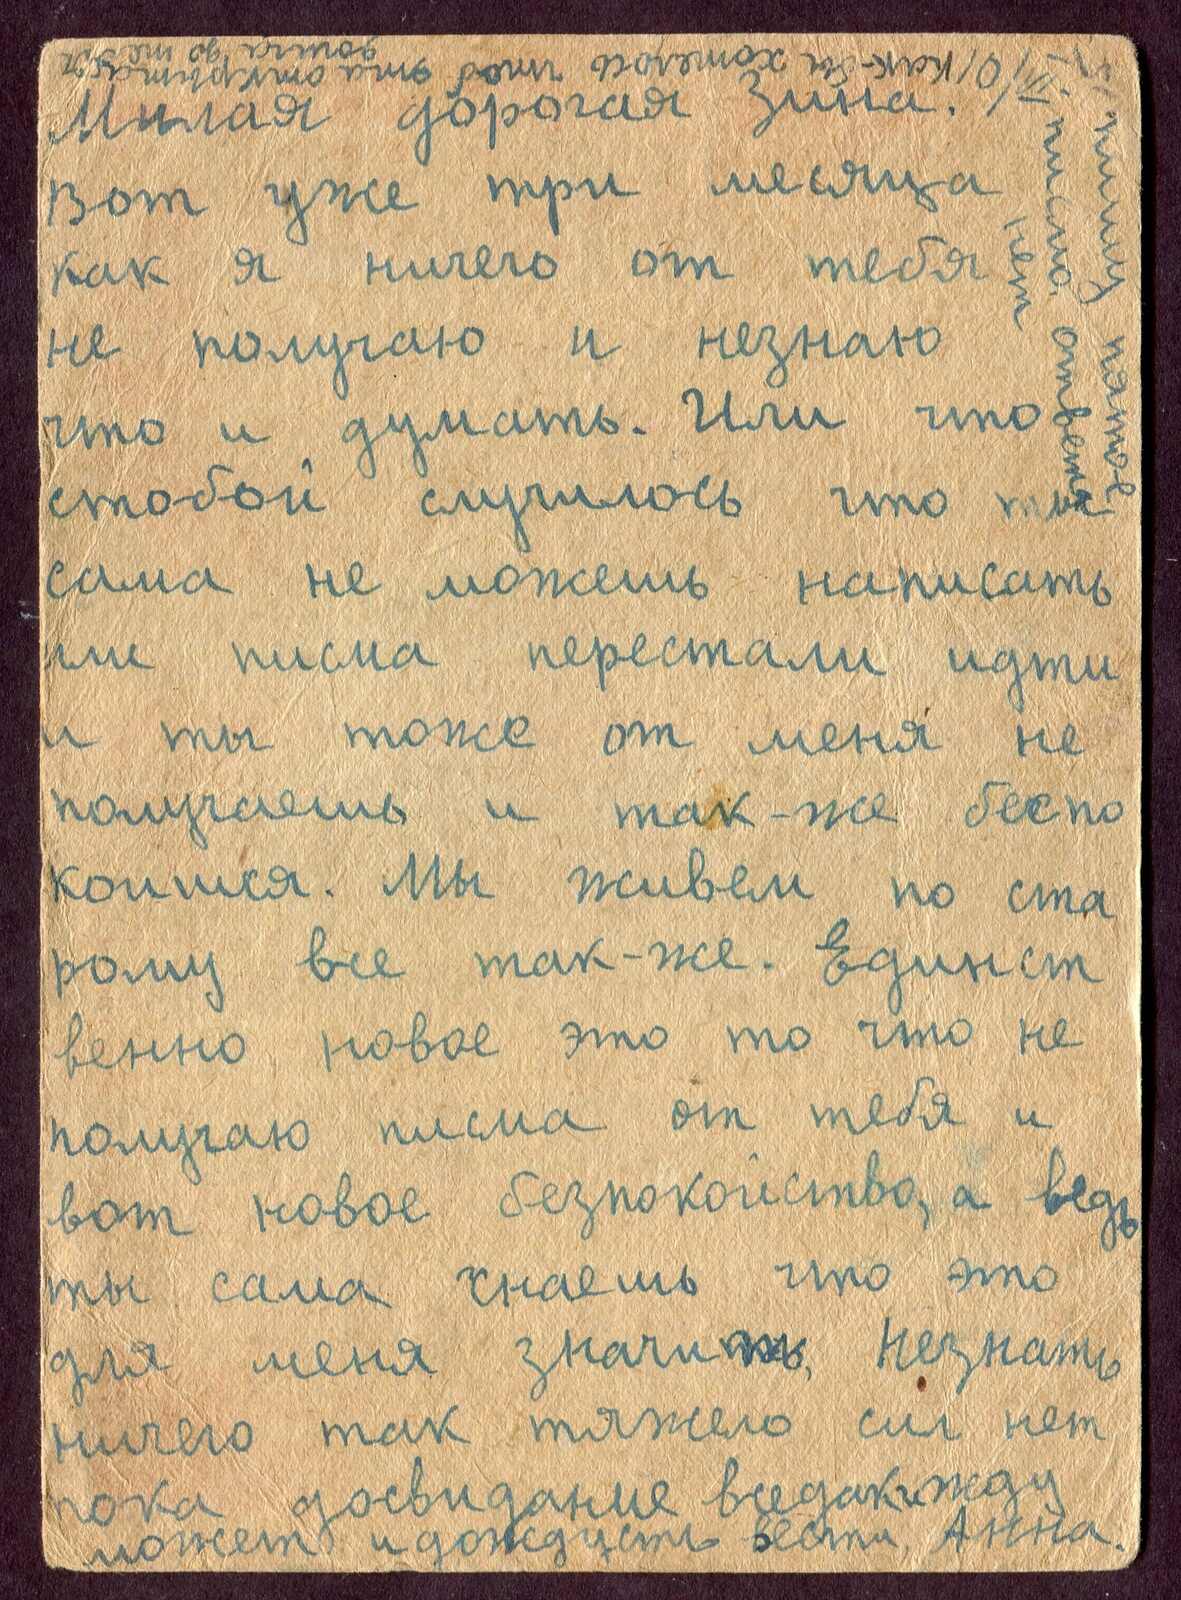 Милая дорогая Зина.
Вот уже три месяца
как я ничего от тебя
не получаю и незнаю
что и думать. Или что
стобой случилось что ты
сама не можешь написать
или писма перестали идти
и ты тоже от меня не
получаешь и так-же беспо
коишся. Мы живем по ста
рому все так-же. Единст
венно новое это то что не
получаю писма от тебя и
вот новое безпокойство, а ведь
ты сама знаешь что это
для меня значить. Незнать
ничего так тяжело сил нет
пока досвидание вседаки жду
может и дождусть вести. Анна.
пишу пятое
письмо, ответа
нет
Как-бы хотелось чтоб эта открытка
дошла до тебя